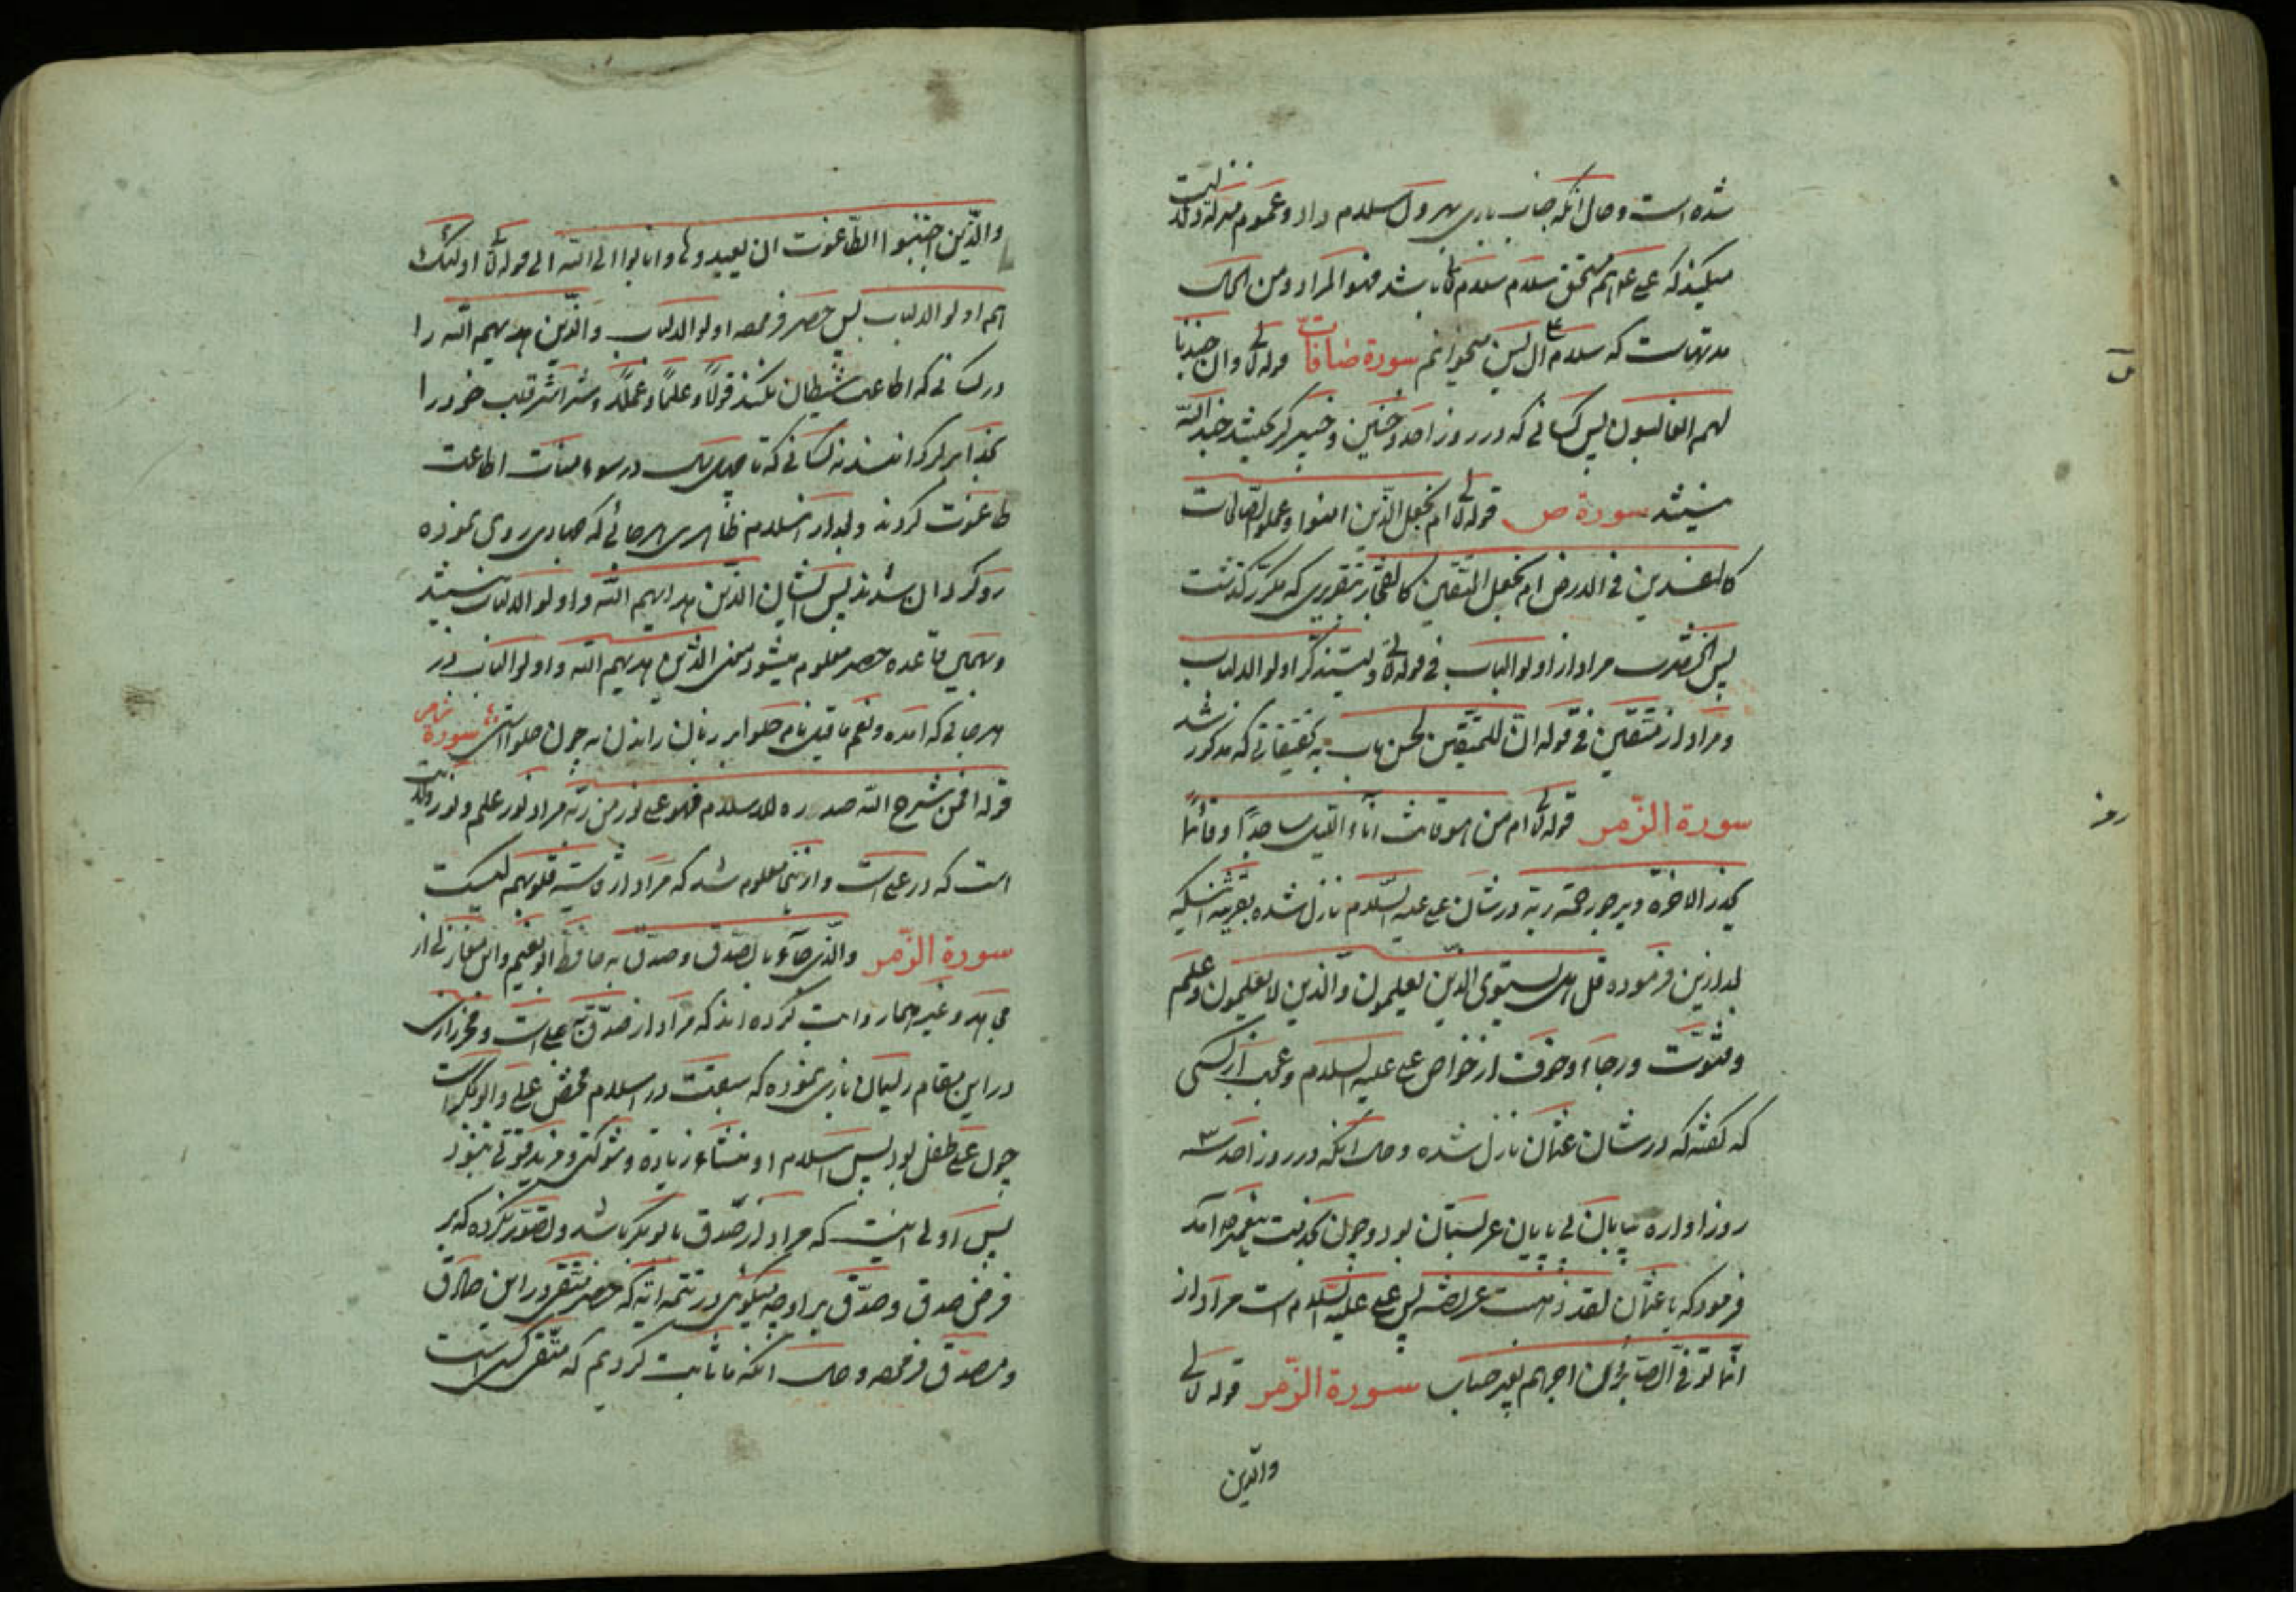 شده است و حال انکه جناب باری بهر ول سلام داد و عموم منزله دلالت
میکند که علی علوایم مستحق سلام سلام تعالی باشد فهو المراد و من المحال
مدتهاست که سلام ال یس میخوانم سورة صافات قوله تعالی وان جندنا
لهم الغالبون پس کسانی که در روز احد و حنین و خیبر گریختند جند الله
نیستند سورة ص قوله تعالی ام نجعل الذین امنوا وعملوا الصالحات
کالمفسدین فی الارض ام نجعل المتقین کالفجار بتقریری که مکرر گذشت
پس مراد از اولوالباب فی قوله تعالی ولیتذکر اولوا الالباب
و مراد از متقین فی قوله ان للمتقین لحسن ماب به تحقیقاتی که مذکور شد
سورة الزمر قوله تعالی ام من هو قانت اناء اللیل ساجدا وقائما
یحذر الاخرة ویرجو رحمة ربه در شان علی علیه السلام نازل شده بقرینه انکه
بعد ازین فرموده قل هل یستوی الذین یعلمون والذین لا یعلمون و علم
و قنوت و رجاء و خوف از خواص علی علیه السلام و عجب از کسی
که گفته که در شان عثمان نازل شده و حال انکه در روز احد سه
روز اواره بیابان بی پایان عربستان بود و چون بخدمت پیغمبر آمد
فرمود که یا عثمان لقد ذهبت عریضة پس علی علیه السلام است مراد از
انما یوفی الصابرون اجرهم بغیر حساب سورة الزمر قوله تعالی
والذین
والذین اجتنبوا الطاغوت ان یعبدوها وانابوا الی الله الی قوله تعالی اولئک
هم اولوا الالباب پس حصر فرموده اولوا الالباب والذین هدیهم الله را
در کسانی که اطاعت شیطان نکنند قولا و علما و عملا و قلب خود را
بخدا برگردانند نه کسانی که تا چهل سال در سومنات اطاعت
طاغوت کردند و بعد از اسلام ظاهری هر جائی که جهادی روی نموده
روگردان شدند پس ایشان الذین هدایهم الله و اولوا الالباب نیستند
و بهمین قاعده حصر معلوم میشود معنی الذین هدیهم الله و اولوا الباب در
هر جائی که امده و نعم ما قیل نام حلوا بر زبان راندن نه چون حلواستی سورة زمر
قوله افمن شرح الله صدره للاسلام فهو علی نور من ربه مراد نور علم و نور ولایت
است که در علی است و از اینجا معلوم شد که مراد از قاسیة قلوبهم کیست
سورة الزمر والذی جاء بالصدق وصدق به حافظ ابونعیم و ابن مغازلی از
مجاهد و غیر هما روایت کرده اند که مراد از صدق به علی است و فخر رازی
در این مقام ریسمان بازی نموده که سبقت در اسلام مخض علی و ابوبکر است
چون علی طفل بود پس اسلام او منشاء زیاده و شوکتی و مزید قوتی نبود
پس اولی اینست که مراد از صدق ابوبکر باشد و تصور نکرده که بر
فرض صدق و صدق بر او چه میگوئی در تتمه آیه که حصر متقی در این صادق
و مصدق فرموده و حال انکه ما ثابت کردیم که متقی کسی است